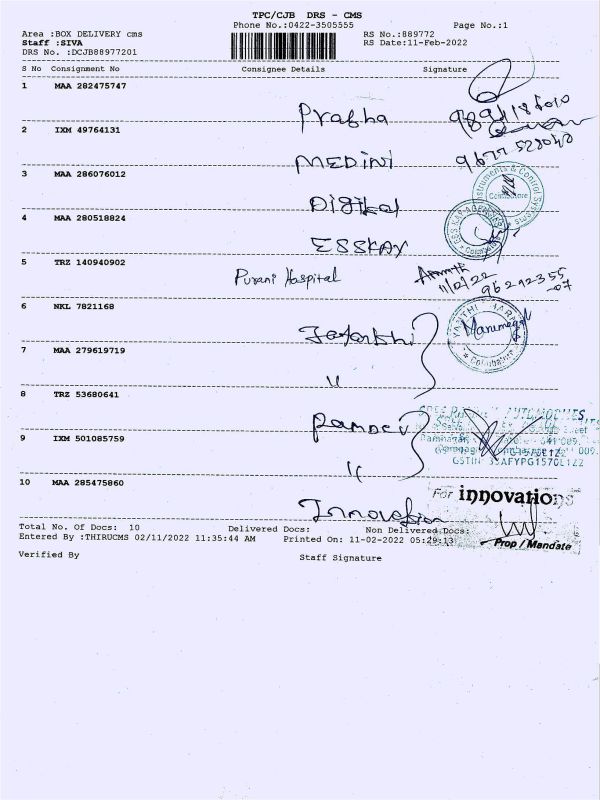 TPC/CJB DRS - CMS
Phone No.:0422-3505555 Page No.:1
Area :BOX DELIVERY cms RS No.:889772
Staff :SIVA RS Date:11-Feb-2022
DRS No. :DCJB88977201
S No Consignment No Consignee Details Signature
1 MAA 282475747
Prabha
2 IXM 49764131
MEDINI 9677 528040
3 MAA 286076012
Digital
4 MAA 280518824
ESSKAY
5 TRZ 140940902
Purani Hospital 11/2/22 96292355
-07
6 NKL 7821168
7 MAA 279619719
"
8 TRZ 53680641
9 IXM 501085759
"
GSTIN 33AFYPG1570E1Z2
10 MAA 285475860
For innovations
Innovation
Total No. Of Docs: 10 Delivered Docs: Non Delivered Docs:
Entered By :THIRUCMS 02/11/2022 11:35:44 AM Printed On: 11-02-2022 05:29:13
Prop / Mandate
Verified By Staff Signature